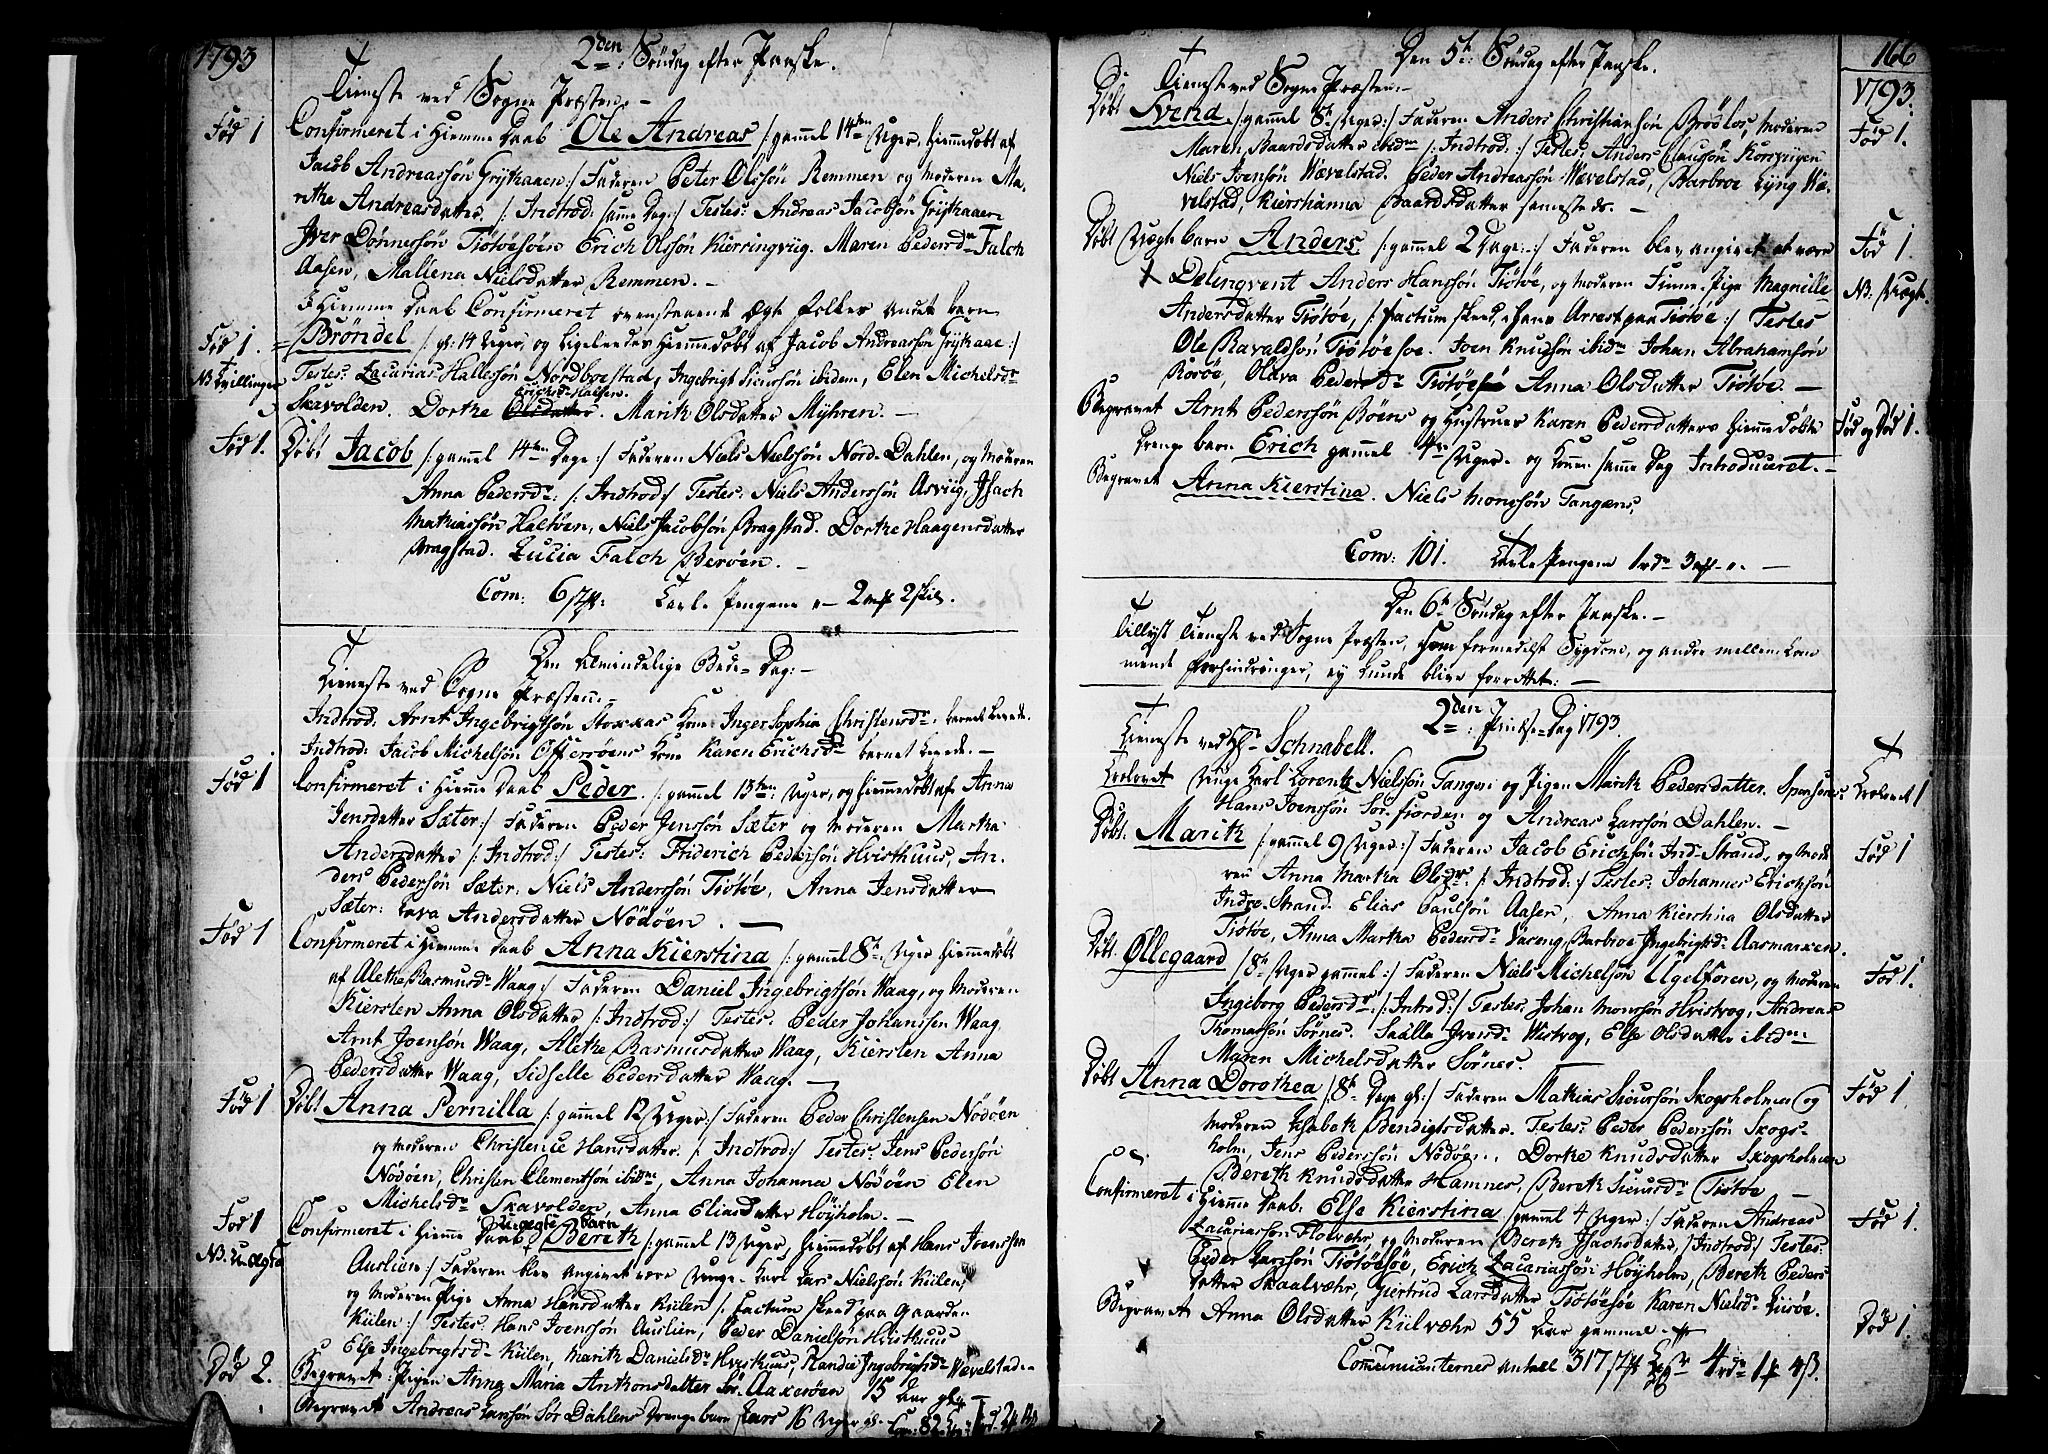 1793
2den Søndag efter Paaske.
Tieneste ved Sogne Præsten. -
Fød 1
Confirmeret i Hiemme Daab Ole Andreas /: gammel 14ten Uger, hiemmedøbt af
Jacob Andreassøn Grythaaen :/ Faderen Peter Olssøn Remmen og Moderen Ma-
rithe Andreasdatter. /: Introd: samme Dag :/ Testes: Andreas Jacobsøn Grythaaen
Iver Dønnessøn Tiøtøesøen Erich Olssøn Kierringviig. Maren Pedersdr Falch
Aasen, Mallena Nielsdatter Remmen. -
I Hiemme Daab Confirmeret ovenstaaende Ægte folkes andet barn
Fød 1.
NB Tvillinger
Brøndel /: gl: 14 Uger, og ligeledes hiemmedøbt af Jacob Andreassøn Grythaae :/
Testes: Zacarias Hallessøn Nordbvestad, Ingebrigt Siurssøn ibidem, Elen Michelsdr
Skavolden. Dorthe Erichsdr Halsen. Marith Olsdatter Myhren. -
Fød 1.
Døbt Jacob /: gammel 14ten Dage :/ Faderen Niels Nielssøn Nord-Dahlen, og Moderen
Anna Pedersdr: /: Indtrod :/ Testes: Niels Anderssøn Asviig, Isach
Mathiassøn Haltøen, Niels Jacobsøn Bragstad. Dorthe Haagensdatter
Bragstad. Lucia Falch Berøen. -
Com: 6 Tavle Pengene - 2 mk 2 skil.
Den Almindelige Bede-Dag: -
Tieneste ved Sogne Præsten. -
Indtrod: Arnt Ingebrigtsøn Stoxxas Kone Inger Sophia Christensdr. barnet levede.
Indtrod: Jacob Michelsøn Offersøens Kone Karen Erichsdr barnet levede. -
Fød 1
Confirmeret i Hiemme Daab Peder /: gammel 13ten Uger, og hiemmedøbt af Anna
Jensdatter Sæter :/ Faderen Peder Jenssøn Sæter og Moderen Martha
Andersdatter /: Indtrod :/ Testes: Friderich Pederssøn Hvisthuus, An-
ders Pedersøn Sæter. Niels Anderssøn Tiøtøe, Anna Jensdatter
Sæter: Lava Andersdatter Nödøen. -
Fød 1
Confirmeret i Hiemme Daab Anna Kierstina /: gammel 8te Uger hiemmedøbt
af Alethe Rasmusdr Waag :/ Faderen Daniel Ingebrigtsøn Waag, og Moderen
Kiersten Anna Olsdatter /: Indtrod :/ Testes: Peder Johanssen Waag
Arnt Joensøn Waag, Alethe Rasmusdatter Waag, Kiersten Anna
Pedersdatter Waag, Sidselle Pedersdatter Waag. -
Fød 1
Døbt Anna Pernilla /: gammel 12 Uger :/ Faderen Peder Christensen Nödöen
og Moderen Christence Hansdatter. /: Indtrod :/ Testes: Jens Pedersøn
Nödöen, Christen Clementsøn ibidm, Anna Johanna Nödöen Elen
Michelsdr Skavolden, Anna Eliasdatter Höyholm. -
Fød 1
NB. Uægte
Confirmeret i Hiemme Daab Uægte barn Bereth /: gammel 13 Uger, hiemmedøbt af Hans Joenssøn
Auslien :/ Faderen blev angivet være Unge-Karl Lars Nielssøn Kiilen,
og Moderen Pige Anna Hansdatter Kiilen /: Factum skeed paa Gaarden
Kiilen :/ Testes: Hans Joenssøn Auslien, Peder Danielsøn Hvisthuus
Else Ingebrigtsdr Kiilen, Marith Danielsdr Hvisthuus, Randie Ingebrigtsdr Wævelstad -
Død 2.
Begravet: Pigen Anna Maria Anthonsdatter Sör-Aaxerøen 15 Aar gl:
Begravet Andreas Larssøn Sör Dahlens Drengebarn Lars 16 Uger gl.
166
1793.
Den 5te Søndag efter Paaske.
Tieneste ved Sogne Præsten. -
Døbt Svend /: gammel 8te Uger :/ Faderen Anders Christiansøn Brøsløs, Moderen
Fød 1.
Maren Baardsdatter ibidm /: Indtrod: :/ Testes: Anders Claussøn Korsviigen
Niels Joensøn Wævelstad. Peder Andreassøn Wævelstad, Barbroe Lyng Wæ-
velstad, Kiershanna Baardsdatter samesteds. -
Døbt Uægte barn Anders /: gammel 2 Dage: :/ Faderen blev angivet at være
Fød 1.
NB: Uægte
Delinqvent Anders Hanssøn Tiøtøe, og Moderen Finne-Pige Magnille
Andersdatter Tiøtøe, /: Factum skeed, i hans Arrest paa Tiøtøe :/ Testes
Ole Ravaldsøn Tiøtøesøe. Joen Knussøn ibidm Johan Abrahamsøn
Rorøe, Olava Pedersdr Tiøtøesøe Anna Olsdatter Tiøtøe. -
Begravet Arnt Pederssøn Böens og Hustrues Karen Pedersdatters hiemmedøbte
Fød og Død 1.
Drenge barn Erich gammel Uger. og Konen samme Dag Introduceret. -
Begravet Anna Kierstina. Niels Monssøn Tangens,
Com: 101. Tavle Pengene 1 rdr 3 mk - . -
Den 6te Søndag efter Paaske. -
Tillyst Tieneste ved Sogne Præsten, som formedelst Sygdom, og andre mellem kom-
mende forhindringer, ey kunde blive forrettet. -
2den Pintse-Dag 1793.
Tieneste ved Hr Schnabell.
Trolovet Unge Karl Lorentz Nielssøn Tangen og Pigen Marith Pedersdatter. Sponsores:
Trolovet 1
Hans Joenssøn Sör-fiorden og Andreas Larssøn Dahlen. -
Døbt. Marith /: gammel 9 Uger :/ Faderen Jacob Erichsøn Ind-Strand, og Mode-
Fød 1
ren Anna Martha Olsdr. /: Indtrod :/ Testes: Johannes Erichsøn
Indre-Strand. Elias Paulsøn Aasen, Anna Kierstina Olsdatter
Tiøtøe, Anna Martha Pedersdr Varong, Barbroe Ingebrigtsdr Aasmarken.
Døbt. Øllegaard /: 8te Uger gammel :/ Faderen Niels Michelsøn Ugelforen, og Moderen
Fød 1.
Ingeborg Pedersdr /: Introd :/ Testes: Johan Monssøn Hvistvog, Andreas
Thomassøn Sørnes. Saälla Iversdr Wistvog, Else Olsdatter ibidm
Maren Michelsdatter Sørnes. -
Døbt Anna Dorothea /: 8te Dage gl :/ Faderen Mathias Siurssøn Skogsholmen og
Fød 1.
Moderen Lisabeth Bendigtsdatter. Testes: Peder Pederssøn Skogs-
holm, Jens Pederssøn Nödöen, Dorthe Knudsdatter Skogsholmen
Bereth Knudsdatter Hamnes, Bereth Siursdr Tiøtøe -
Confirmeret i Hiemme Daab. Else Kierstina /: gammel 4 Uger :/ Faderen Andreas
Fød 1.
Zacariassøn Floevæhr, og Moderen Bereth Isachsdatter, /: Indtrod :/ Testes:
Peder Larssøn Tiøtøesøe, Erich Zacariassøn Höyholm, Bereth Peders-
datter Skaalvæhr, Giertrud Larsdatter Tiøtøesøe Karen Nielsdr Giröe.
Begravet Anna Olsdatter Kiilvæhr 55 Aar gammel -
Død 1.
Communicanternes Antall 317 4 rdr 1 4 ß.